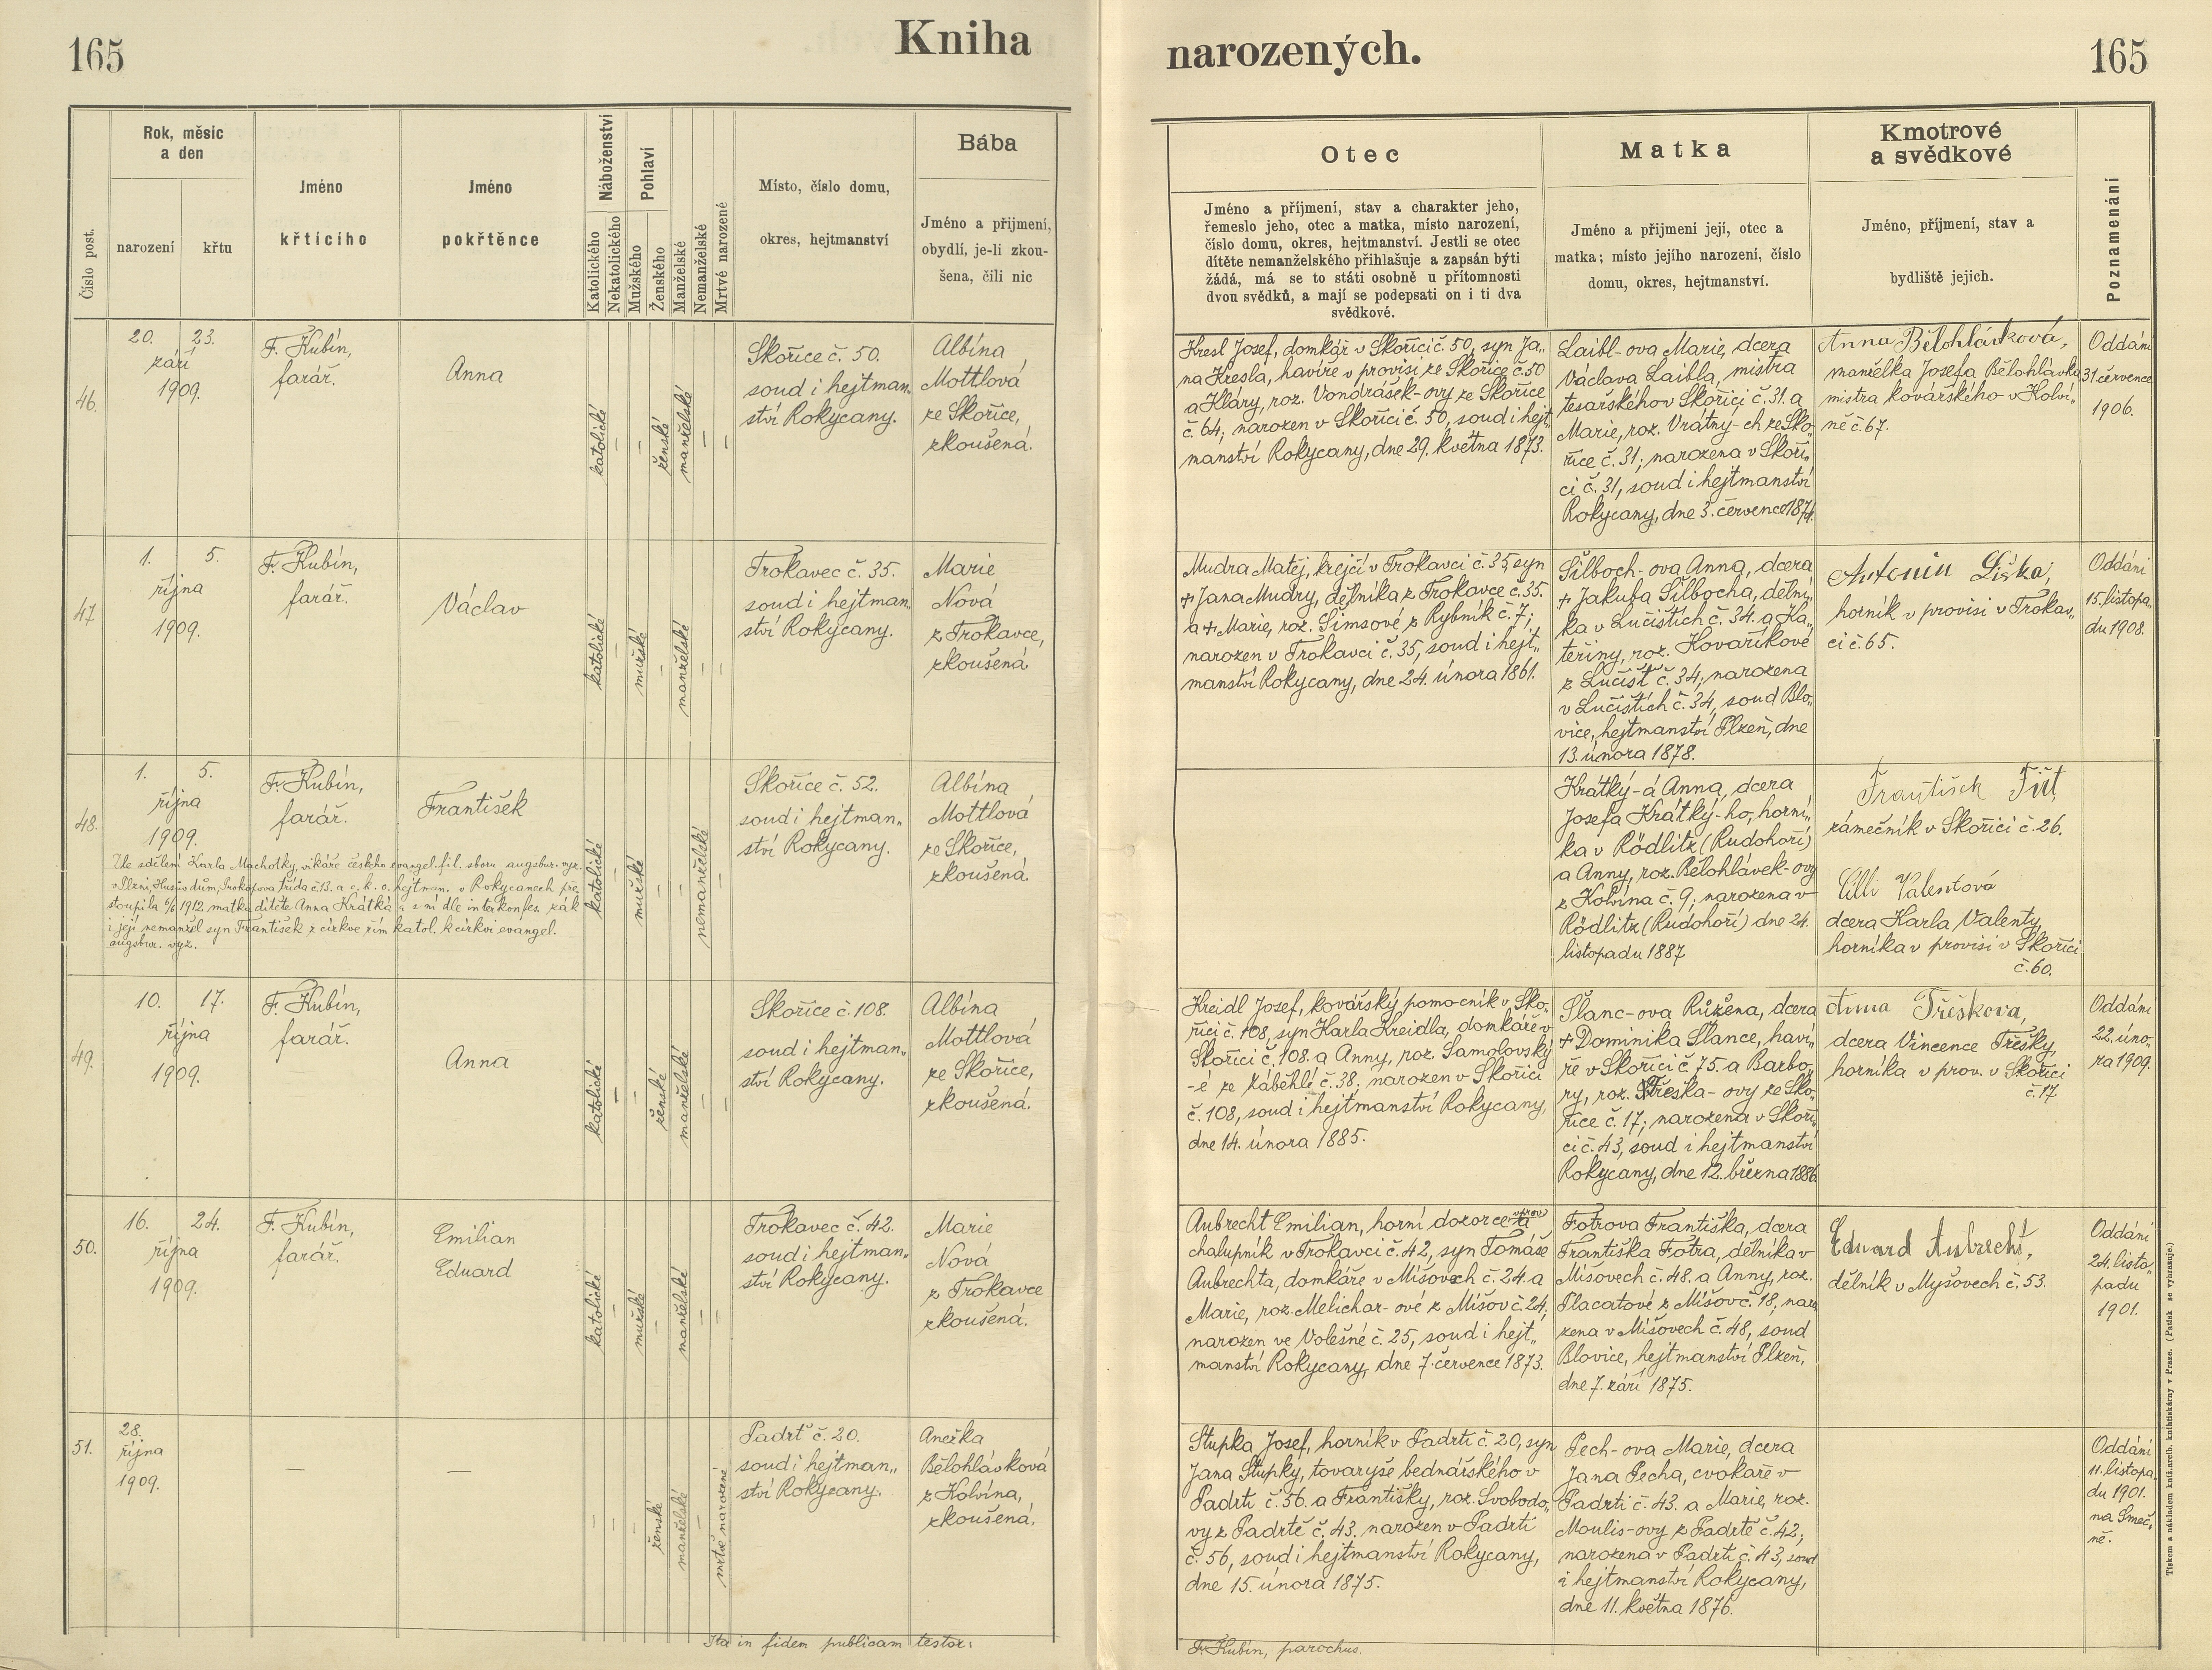 165
Kniha
narozených.
165
Číslo post.
Rok, měsíc
a den
narození
křtu
Jméno
křtícího
Jméno
pokřtěnce
Náboženství
Katolického
Nekatolického
Pohlaví
Mužského
Ženského
Manželské
Nemanželské
Mrtvé narozené
Místo, číslo domu,
okres, hejtmanství
Bába
Jméno a přijmení,
obydlí, je-li zkou-
šena, čili nic
Otec
Jméno a příjmení, stav a charakter jeho,
řemeslo jeho, otec a matka, místo narození,
číslo domu, okres, hejtmanství. Jestli se otec
dítěte nemanželského přihlašuje a zapsán býti
žádá, má se to státi osobně u přítomnosti
dvou svědků, a mají se podepsati on i ti dva
svědkové.
Matka
Jméno a přijmení její, otec a
matka; místo jejího narození, číslo
domu, okres, hejtmanství.
Kmotrové
a svědkové
Jméno, příjmení, stav a
bydliště jejich.
Poznamenání
46.
20. 23.
září
1909.
F. Kubín,
farář.
Anna
katolické
–
–
ženské
manželské
–
–
Skořice č. 50.
soud i hejtman„
ství Rokycany.
Albína
Mottlová
ze Skořice,
zkoušená.
Kresl Josef, domkář v Skořici č. 50, syn Ja„
na Kresla, havíře v provisi ze Skořice č. 50
a Kláry, roz. Vondrášek-ovy ze Skořice
č. 64; narozen v Skořici č. 50, soud i hejt„
manství Rokycany, dne 29. května 1873.
Laibl-ova Marie, dcera
Václava Laibla, mistra
tesařského v Skořici č. 31. a
Marie, roz. Vrátny-ch ze Sko„
řice č. 31; narozena v Skoři„
ci č. 31, soud i hejtmanství
Rokycany, dne 3. července
Anna Bělohlávková,
manželka Josefa Bělohlávka
mistra kovářského v Kolví„
ně č. 67.
Oddáni
31. července
1906.
47
1. 5.
října
1909.
F. Kubín,
farář.
Václav
katolické
–
mužské
–
manželské
–
–
Trokavec č. 35.
soud i hejtman„
ství Rokycany.
Marie
Nová
z Trokavce,
zkoušená
Mudra Matěj, krejčí v Trokavci č. 35, syn
+ Jana Mudry, dělníka z Trokavce č. 35.
a + Marie, roz. Šimsové z Rybník č. 7;
narozen v Trokavci č. 35, soud i hejt„
manství Rokycany, dne 24. února 1861.
Šilboch-ova Anna, dcera
+ Jakuba Šilbocha, dělní„
ka v Lučištích č. 34. a Ka„
teřiny, roz. Kovaříkové
z Lučišť č. 34; narozena
v Lučištích č. 34, soud Blo„
vice, hejtmanství Plzeň, dne
13. února 1878.
Antonin Liška,
horník v provisi v Trokav„
ci č. 65.
Oddáni
15. listopa„
du 1908.
48.
1. 5.
října
1909.
F. Kubín,
farář.
František
katolické
–
mužské
–
nemanželské
Skořice č. 52.
soud i hejtman„
ství Rokycany.
Albína
Mottlová
ze Skořice,
zkoušená.
Dle sdělení Karla Machotky, vikáře českého evangel. fil. sboru augsbur. vyz.
v Plzni, Husův dům, Prokopova třída č. 13. a c. k. o. hejtman. v Rokycanech pře„
stoupila 6/6 1912 matka dítěte Anna Krátká a s ní dle interkonfes. zák
i její nemanžel syn František z církve řím katol. k církvi evangel.
augsbur. vyz.
Krátký-á Anna, dcera
Josefa Krátký-ho, horní„
ka v Rödlitz (Rudohoří)
a Anny, roz. Bělohlávek-ovy
z Kolvína č. 9; narozena v
Rödlitz (Rudohoří) dne 24.
listopadu 1887
František
zámečník v Skořici č. 26.
Cilli Valentová
dcera Karla Valenty,
horníka v provisi v Skořici
č. 60.
49.
10. 17.
října
1909.
F. Kubín,
farář.
Anna
katolické
–
–
ženské
manželské
–
–
Skořice č. 108.
soud i hejtman„
ství Rokycany.
Albína
Mottlová
ze Skořice,
zkoušená.
Kreidl Josef, kovářský pomocník v Sko„
řici č. 108, syn Karla Kreidla, domkáře v
Skořici č. 108. a Anny, roz. Samolovský
-é ze Záběhlé č. 38; narozen v Skořici
č. 108, soud i hejtmanství Rokycany,
dne 14. února 1885.
Šlanc-ova Růžena, dcera
+ Dominika Šlance, haví„
ře v Skořici č. 75. a Barbo„
ry, roz. Třeska-ovy ze Sko„
řice č. 17; narozena v Skoři„
ci č. 43, soud i hejtmanství
Rokycany, dne 12. března 1886.
Anna Třeskova,
dcera Vincence Třesky,
horníka v prov. v Skořici
č. 17
Oddáni
22. úno„
ra 1909.
50.
16. 24.
října
1909.
F. Kubín,
farář.
Emilian
Eduard
katolické
–
mužské
–
manželské
–
–
Trokavec č. 42.
soud i hejtman„
ství Rokycany.
Marie
Nová
z Trokavce
zkoušená.
Aubrecht Emilian, horní dozorce a
chalupník v Trokavci č. 42, syn Tomáše
Aubrechta, domkáře v Míšovech č. 24. a
Marie, roz. Melichar-ové z Míšov č. 24;
narozen ve Volešné č. 25, soud i hejt„
manství Rokycany, dne 7. července 1873.
Fotrova Františka, dcera
Františka Fotra, dělníka v
Míšovech č. 48. a Anny, roz.
Placatové z Míšov č. 18, naro
zena v Míšovech č. 48, soud
Blovice, hejtmanství Plzeň,
dne 7. září 1875.
Eduard Aubrecht,
dělník v Myšovech č. 53.
Oddáni
24. listo„
padu
1901.
51.
28.
října
1909.
—
—
–
–
–
ženské
manželské
–
mrtvě narozené
Padrť č. 20.
soud i hejtman„
ství Rokycany.
Anežka
Bělohlávková
z Kolvína,
zkoušená,
Stupka Josef, horník v Padrti č. 20, syn
Jana Stupky, tovaryše bednářského v
Padrti č. 56. a Františky, roz. Svobodo„
vy z Padrtě č. 43. narozen v Padrti
č. 56, soud i hejtmanství Rokycany,
dne 15. února 1875.
Pech-ova Marie, dcera
Jana Pecha, cvokaře v
Padrti č. 43. a Marie, roz.
Moulis-ovy z Padrtě č. 42;
narozena v Padrti č. 43, soud
i hejtmanství Rokycany,
dne 11. května 1876.
Oddáni
11. listopa„
du 1901.
na Smeč„
ně.
Ita in fidem publicam testor:
Fr. Kubín, parochus.
Tiskem a nákladem kníž.arcib. knihtiskárny v Praze. (Patisk se vyhrazuje.)